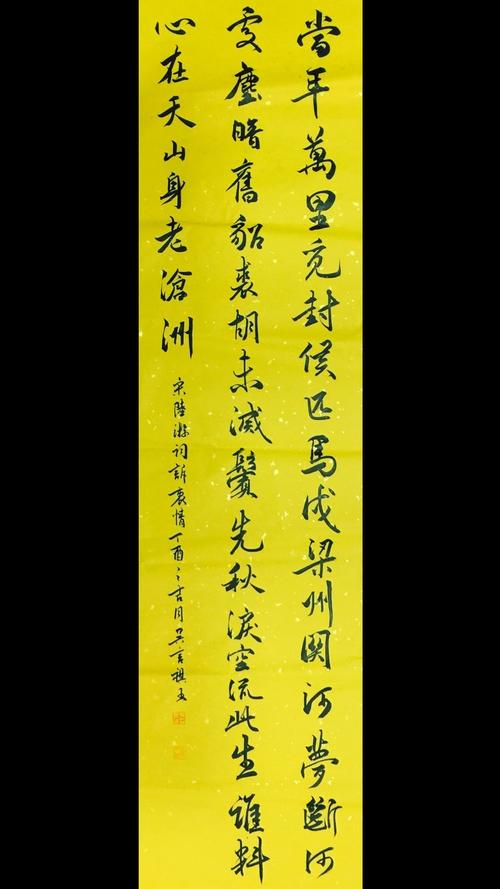 當年萬里覓封侯匹馬戍梁州関河夢斷何
處塵暗舊貂裘胡未滅鬢先秋淚空流此生誰料
心在天山身老滄洲
宋陸游詞訴衷情丁酉